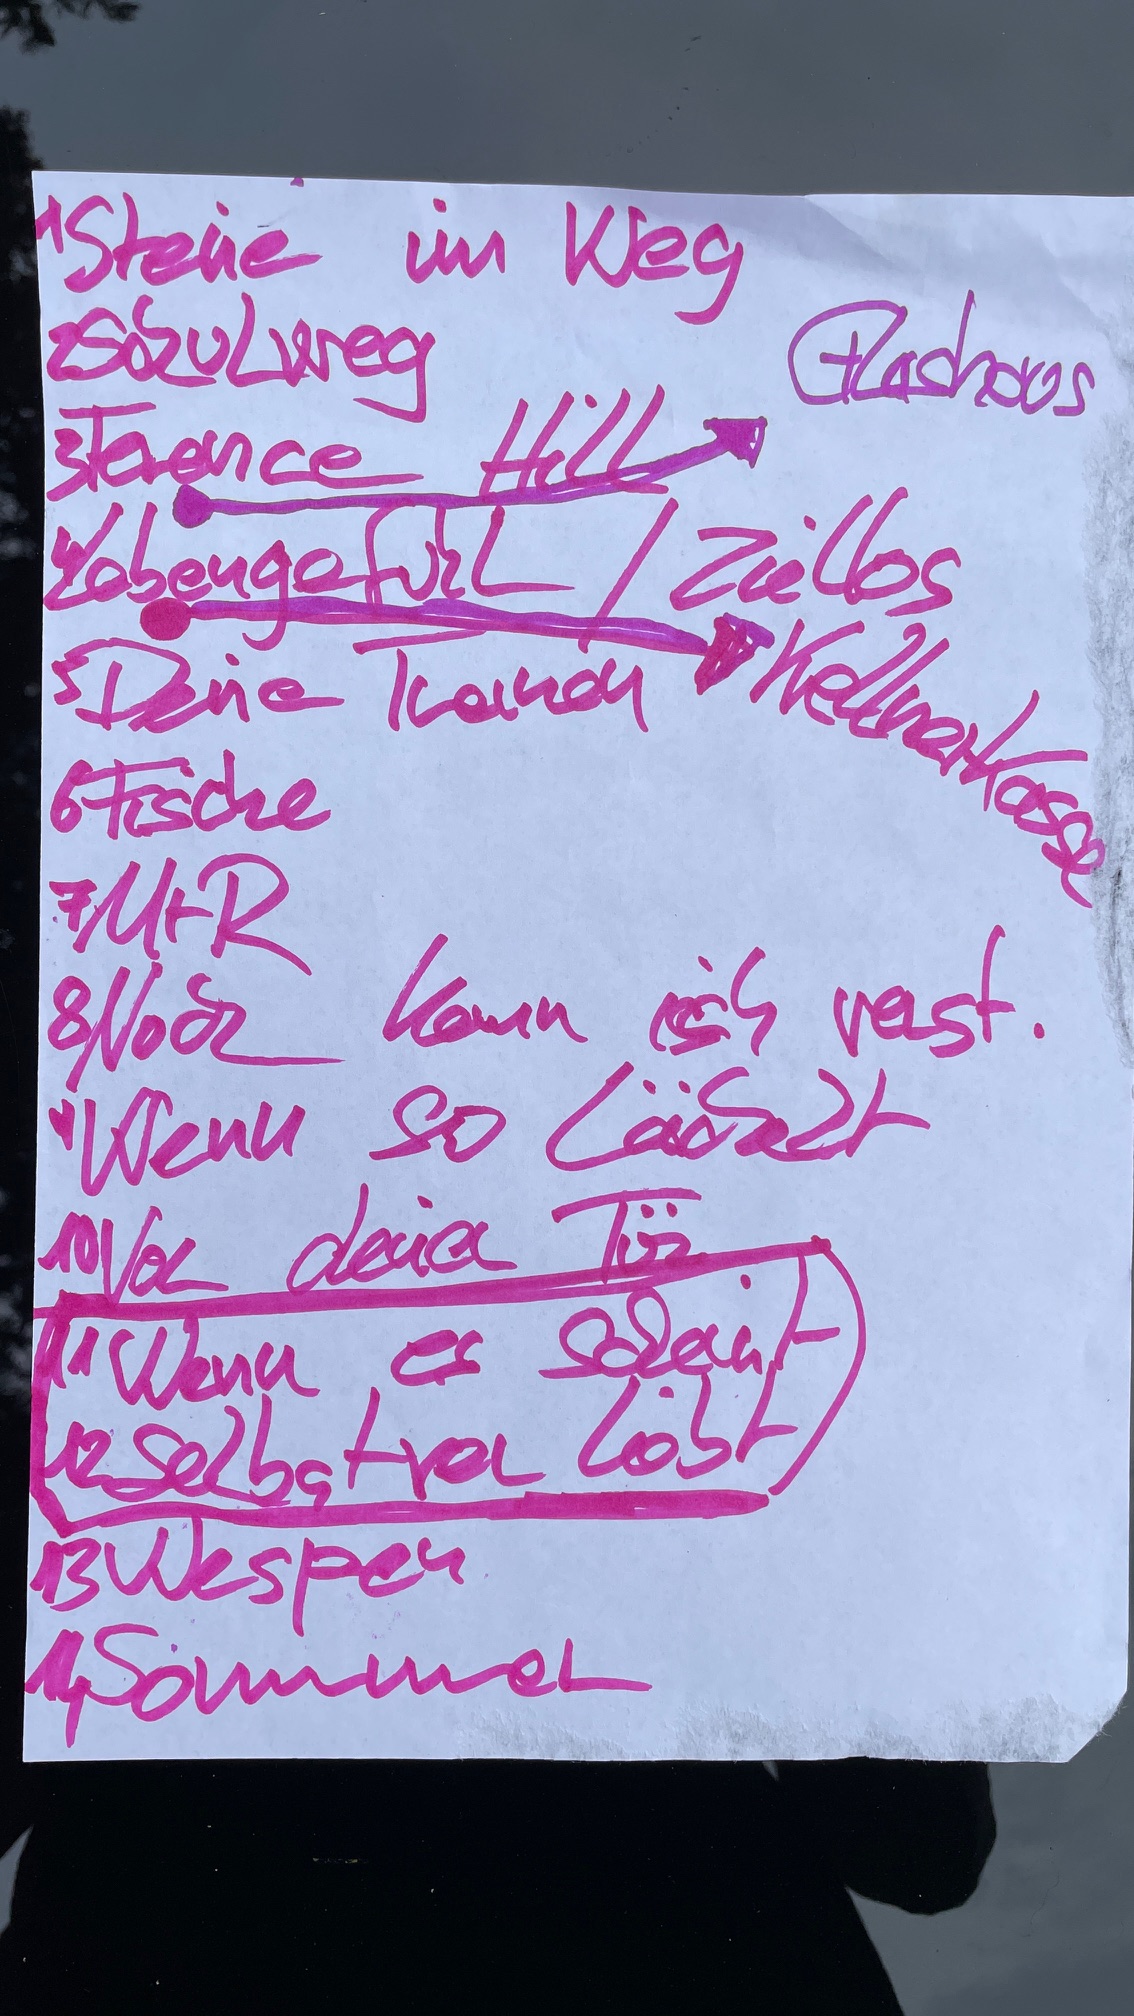 1 Steine im Weg
2 Schulweg
Glashaus
3 Terence Hill
4 Lebengefühl / Ziellos
5 Deine Tränen
Kellnerkasse
6 Fische
7 M+R
8 Noch kann ich verst.
9 Wenn so lächelt
10 Vor deiner Tür
11 Wenn es schneit
12 Selbstverliebt
13 Wespen
14 Sommer